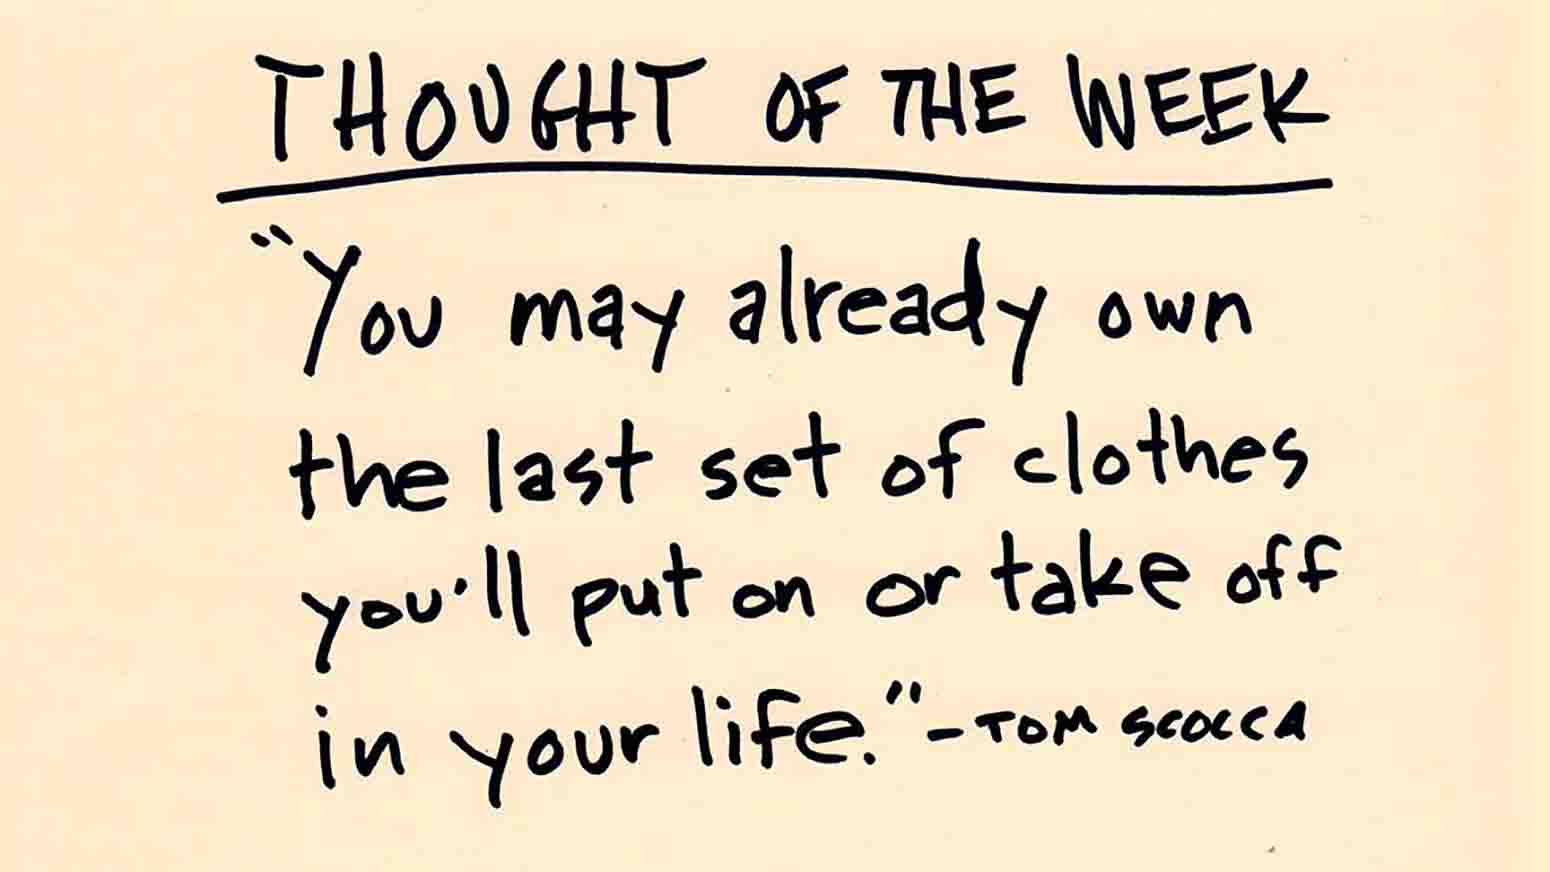 THOUGHT OF THE WEEK
"You may already own
the last set of clothes
you'll put on or take off
in your life." - TOM SCOCCA